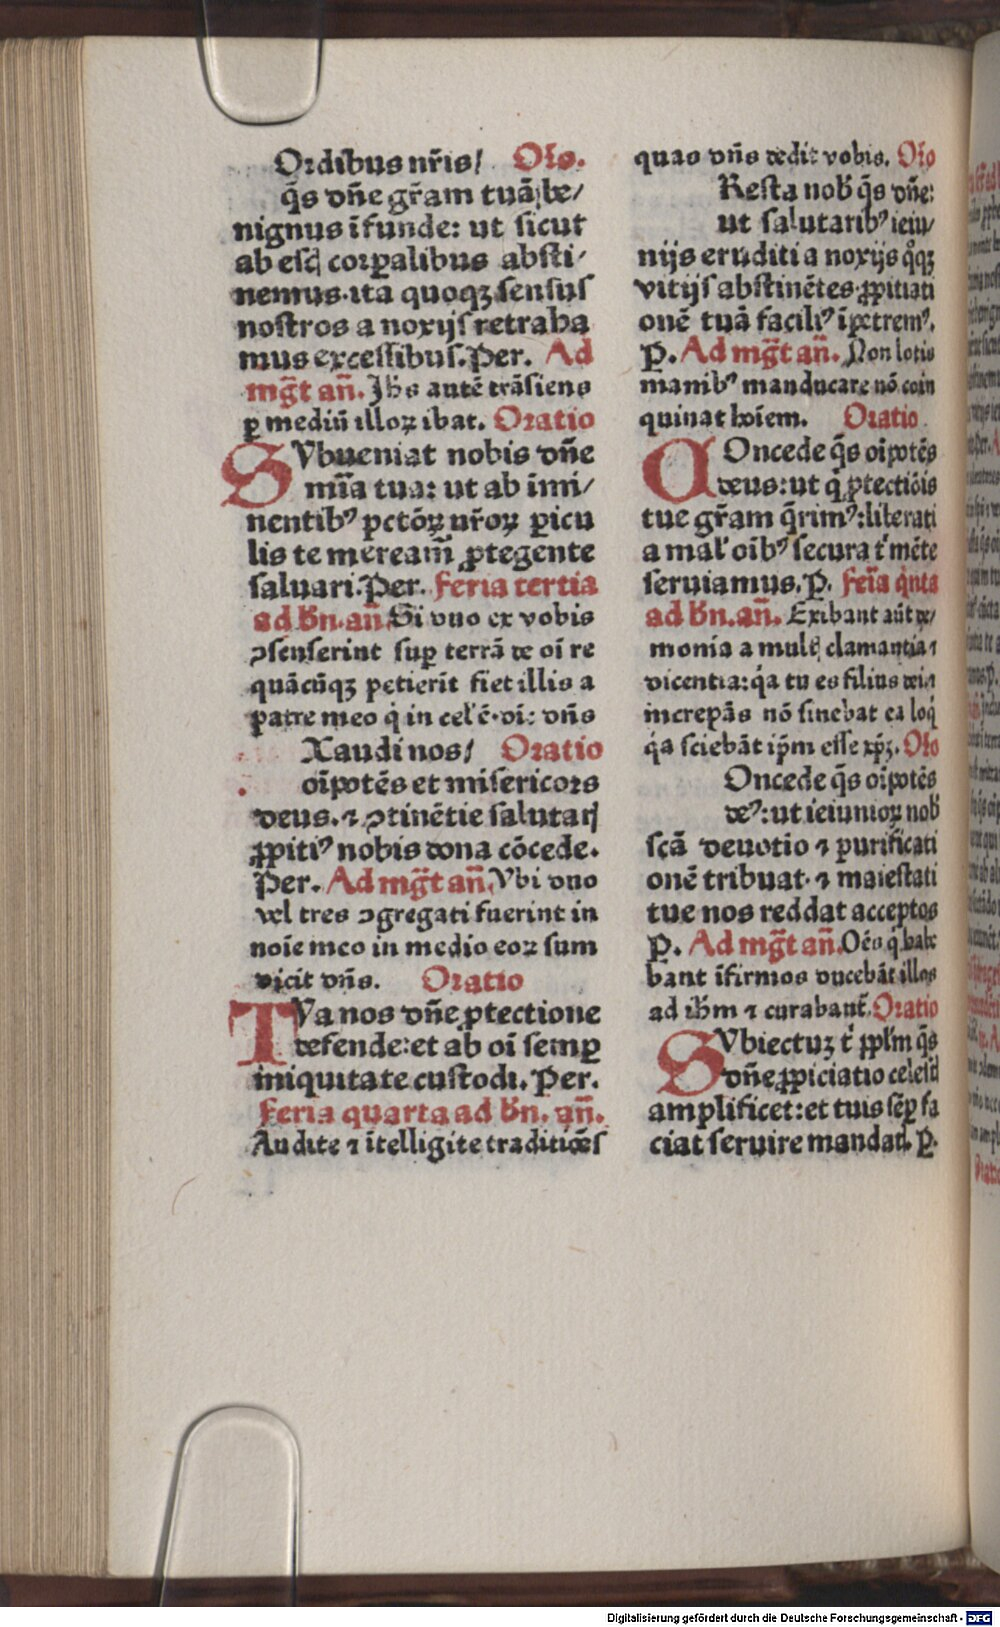 Ordibus nr̃is/ Oŕo.
q̃s dñe gr̃am tuã be/
nignus ĩfunde: ut sicut
ab esc̨ corꝑalibus absti/
nemus·ita quoqꝫ sensus
nostros a noxijs retraha
mus excessibus. Per. Ad
mg̃t añ. Jhs autẽ trãsiens
ꝑ mediũ illoꝝ ibat. Oratio
SVbueniat nobis dñe
mĩa tua: ut ab ĩmi/
nentibꝰ pctõꝝ nr̃oꝝ ꝑicu
lis te meream̃ ꝓtegente
saluari. Per. Feria tertia
ad bñ. añ. Si duo ex vobis
ↄsenserint suꝑ terrã de oĩ re
quãcũqꝫ petierit fiet illis a
patre meo q̇ in cel̕ ẽ·dĩ: dñs
Xaudi nos/ Oratio
oĩpotẽs et misericors
deus. ⁊ ↄtinẽtie salutarꝭ
ꝓpitiꝰ nobis dona cõcede.
Per. Ad mg̃t añ. Vbi duo
vel tres ↄgregati fuerint in
noĩe meo in medio eoꝝ sum
dicit dñs. Oratio
TVa nos dñe ꝓtectione
defende: et ab oĩ semꝑ
iniquitate custodi. Per.
Feria quarta ad bñ. añ.
Audite ⁊ ĩtelligite traditiões
quas dñs dedit vobis. Oŕo
Resta nob̕ q̃s dñe:
ut salutaribꝰ ieiu/
nijs eruditi a noxijs q̊qꝫ
vitijs abstinẽtes ꝓpitiati
onẽ tuã faciliꝰ ĩpetremꝰ.
P. Ad mg̃t añ. Non lotis
manibꝰ manducare nõ coin
quinat hoĩem. Oratio.
COncede q̃s oĩpotẽs
deus: ut q̇ ꝓtectiõis
tue gr̃am q̃rimꝰ: liberati
a mal̕ oĩbꝰ secura t̕ mẽte
seruiamus. P. Feĩa q̇nta
ad bñ. añ. Exibant aũt de/
monia a mult̨ clamantia ⁊
dicentia: q̇a tu es filius dei ⁊
increpãs nõ sinebat ea loq̇
q̇a sciebãt ip̃m esse xp̃ꝫ. Oŕo
Oncede q̃s oĩpotẽs
deꝰ: ut ieiunioꝝ nob̕
scã deuotio ⁊ purificati
onẽ tribuat· ⁊ maiestati
tue nos reddat acceptos
P. Ad mg̃t añ. Oẽs q̇ habe
bant ĩfirmos ducebãt illos
ad ihm̃ ⁊ curabant̃. Oratio
SVbiectuꝫ t̕ ppl̃m q̃s
dñe ꝓpiciatio celestꝭ
amplificet: et tuis sẽꝑ fa
ciat seruire mandatꝭ. P.
Digitalisierung gefördert durch die Deutsche Forschungsgemeinschaft - DFG